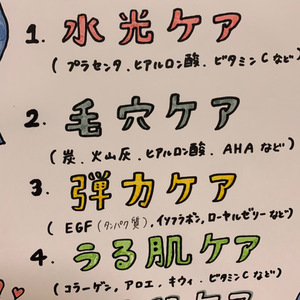 1. 水光ケア
(プラセンタ、ヒアルロン酸、ビタミンCなど)
2. 毛穴ケア
(炭、火山灰、ヒアルロン酸、AHAなど)
3. 弾力ケア
(EGF(タンパク質)、イソフラボン、ローヤルゼリーなど)
4. うる肌ケア
(コラーゲン、アロエ、キウィ、ビタミンCなど)